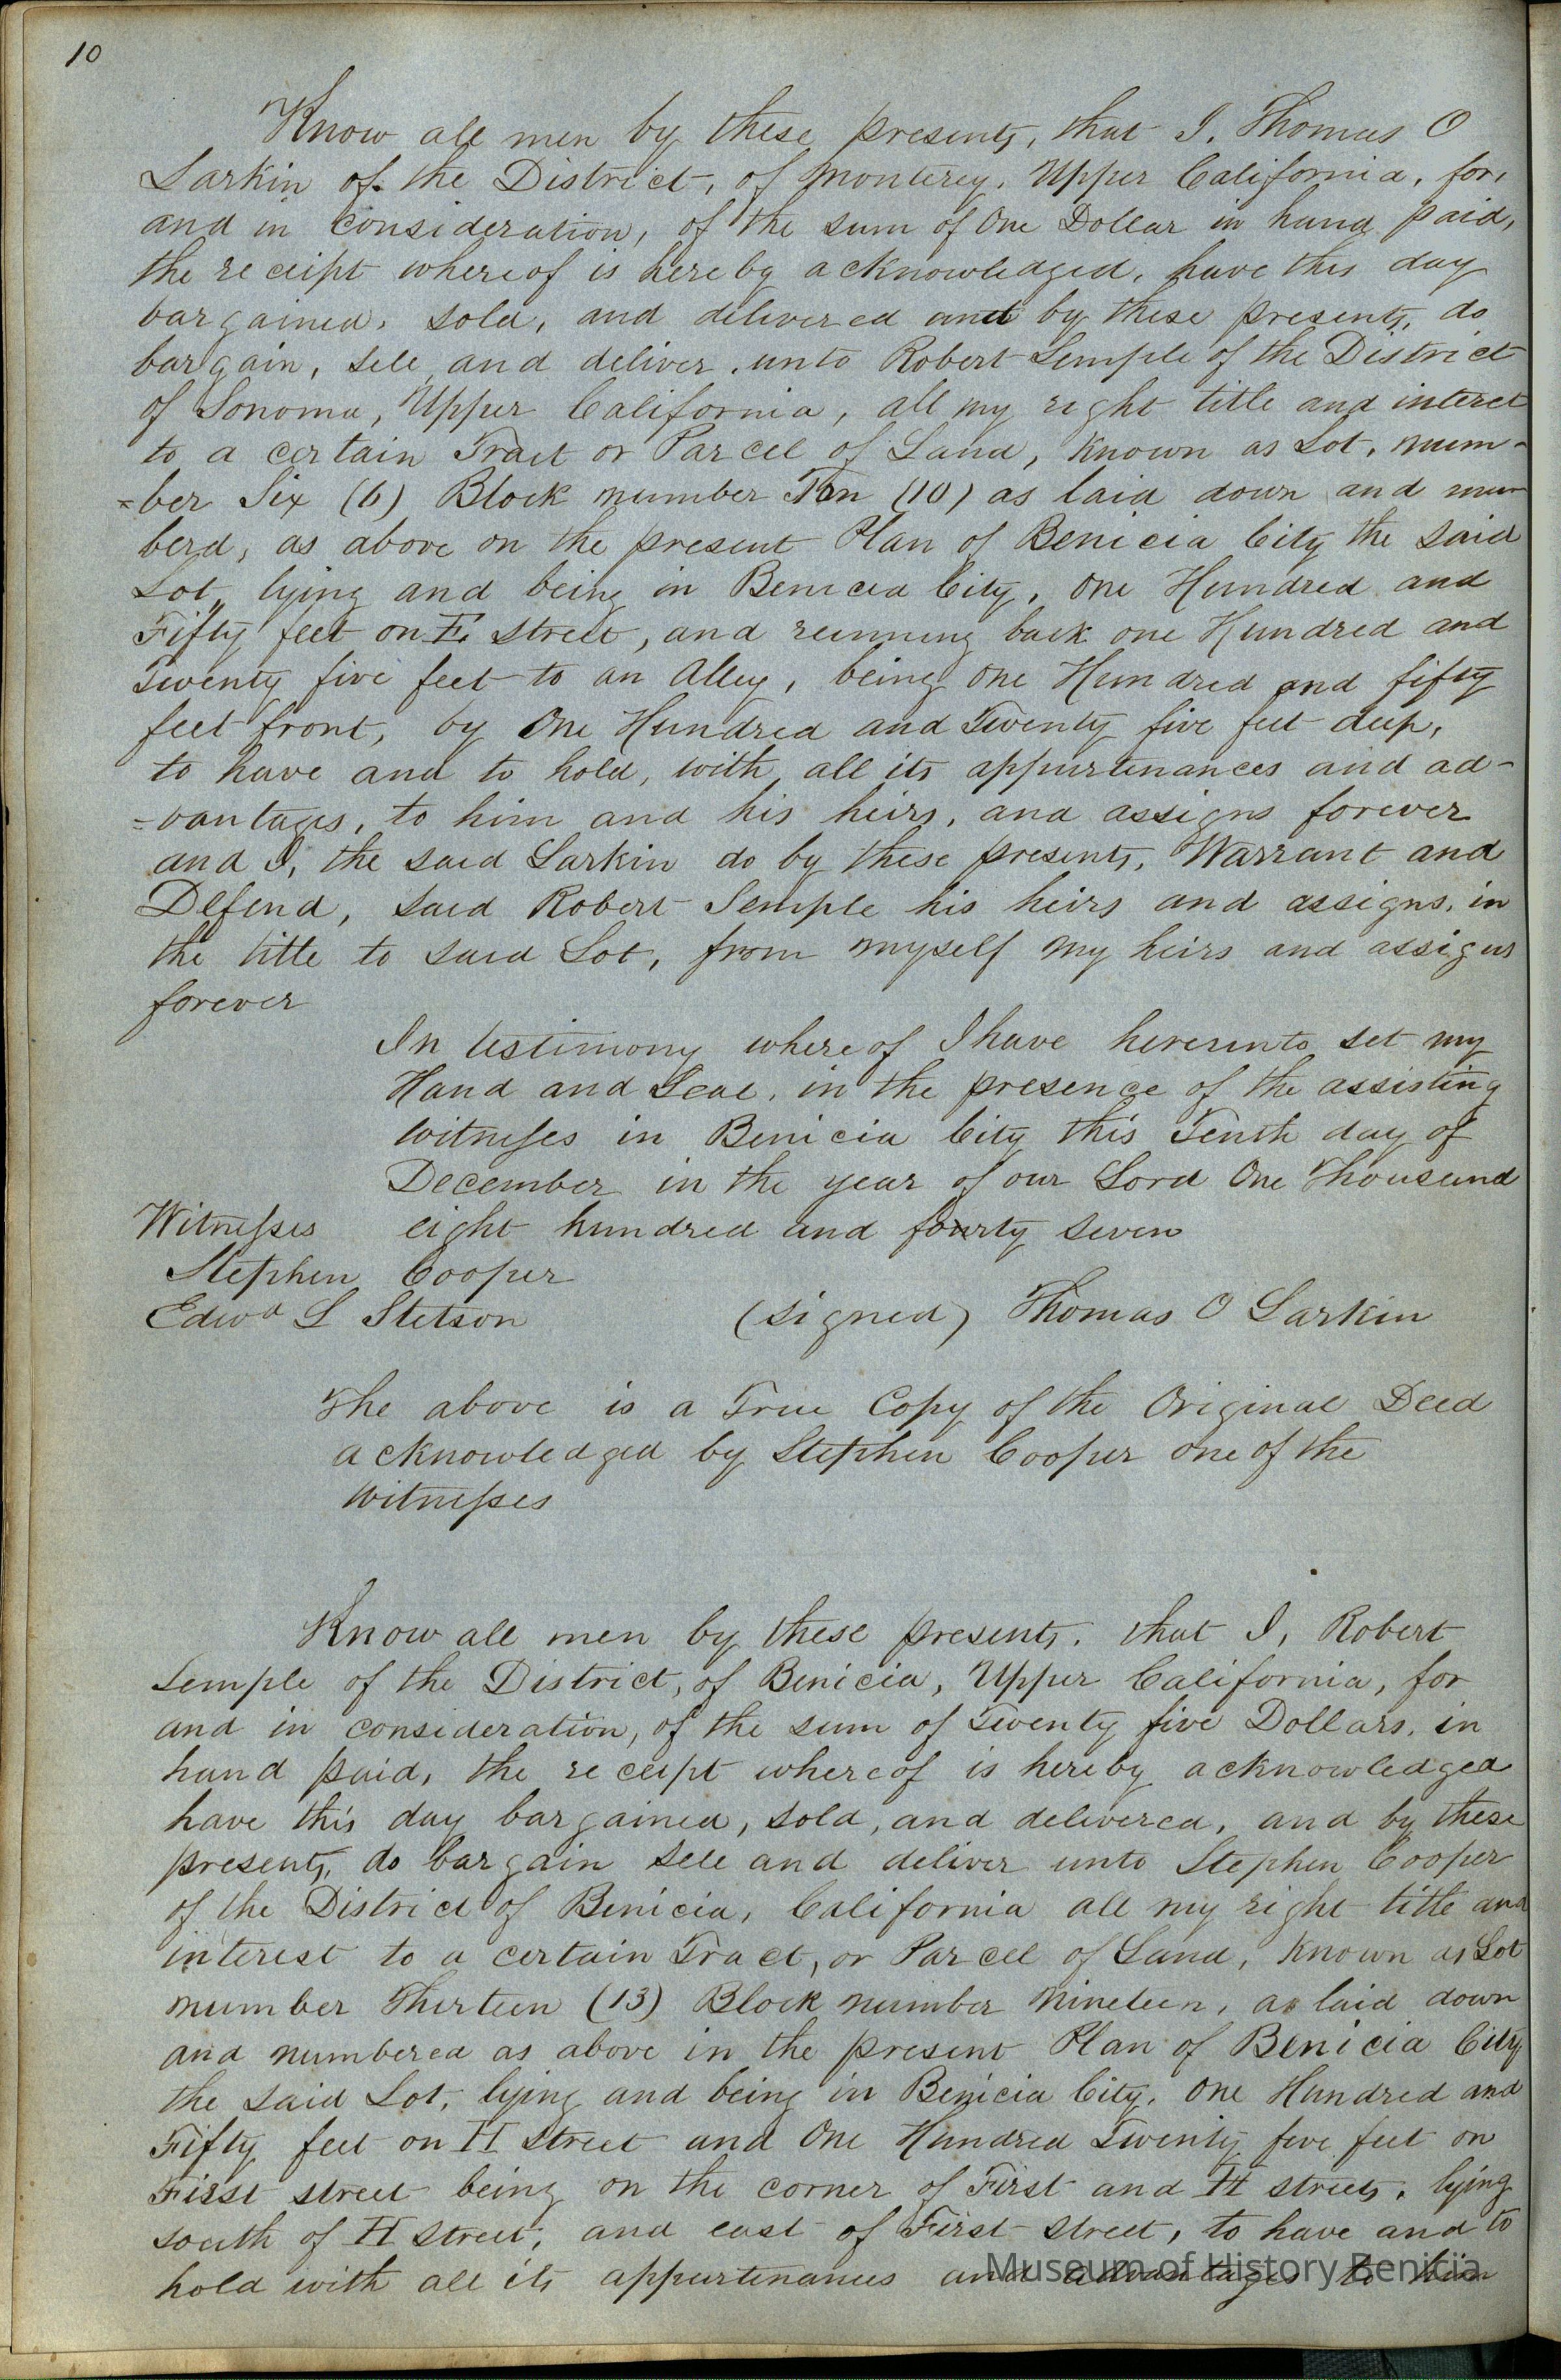 10
Know all men by these presents, that I, Thomas O
Larkin of the District, of Monterey, Upper California, for,
and in consideration, of the sum of One Dollar in hand paid,
the receipt whereof is hereby acknowledged, have this day
bargained, sold, and delivered and by these presents, do
bargain, sell, and deliver, unto Robert Semple of the District
of Sonoma, Upper California, all my right title and interet
to a certain Tract or Parcel of Land, known as Lot, num-
=ber Six (6) Block number Ten (10) as laid down and num
berd, as above on the present Plan of Benicia City the said
Lot, lying and being in Benicia City, One Hundred and
Fifty feet on E. Street, and running back one Hundred and
Twenty five feet to an Alley, being One Hundred and fifty
feet front, by One Hundred and Twenty five feet deep,
to have and to hold, with all its appurtenances and ad-
=vantages, to him and his heirs, and assigns forever
and I, the said Larkin do by these presents, Warrant and
Defend, said Robert Semple his heirs and assigns, in
the title to said Lot, from myself my heirs and assigns
forever
In testimony whereof I have hereunto set my
Hand and Seal, in the presence of the assisting
Witnesses in Benicia City this Tenth day of
December in the year of our Lord One Thousand
Witnesses eight hundred and fourty seven
Stephen Cooper
Edwd L Stetson (signed) Thomas O Larkin
The above is a True Copy of the Original Deed
acknowledged by Stephen Cooper one of the
Witnesses
Know all men by these presents, that I, Robert
Semple of the District, of Benicia, Upper California, for
and in consideration, of the sum of Twenty five Dollars, in
hand paid, the receipt whereof is hereby acknowledged
have this day bargained, sold, and delivered, and by these
presents, do bargain sell and deliver unto Stephen Cooper
of the District of Benicia, California all my right title and
interest to a certain Tract, or Parcel of Land, known as Lot
number Thirteen (13) Block number Nineteen, as laid down
and numbered as above in the present Plan of Benicia City
the said Lot, lying and being in Benicia City, One Hundred and
Fifty feet on H Street and One Hundred Twenty five feet on
First street being on the corner of First and H streets, lying
south of H Street, and east of First Street, to have and to
hold with all its appurtenances and advantages to him
Museum of History Benicia